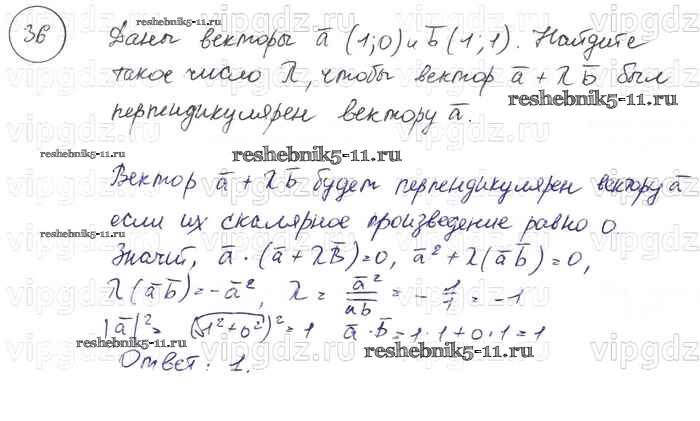 36
reshebnik5-11.ru
Даны векторы a̅ (1;0) и b̅ (1;1). Найдите
такое число λ, чтобы вектор a̅ + λb̅ был
reshebnik5-11.ru
перпендикулярен вектору a̅.
reshebnik5-11.ru
reshebnik5-11.ru
Вектор a̅ + λb̅ будет перпендикулярен вектору a̅
если их скалярное произведение равно 0.
reshebnik5-11.ru
Значит, a̅ · (a̅ + λb̅) = 0, a̅² + λ(a̅b̅) = 0,
λ(a̅b̅) = -a̅², λ = a̅²/ab = - 1/1 = -1
|a̅|² = (√1² + 0²)² = 1 a̅ · b̅ = 1·1 + 0·1 = 1
reshebnik5-11.ru
reshebnik5-11.ru
Ответ: 1.
vipgdz.ru